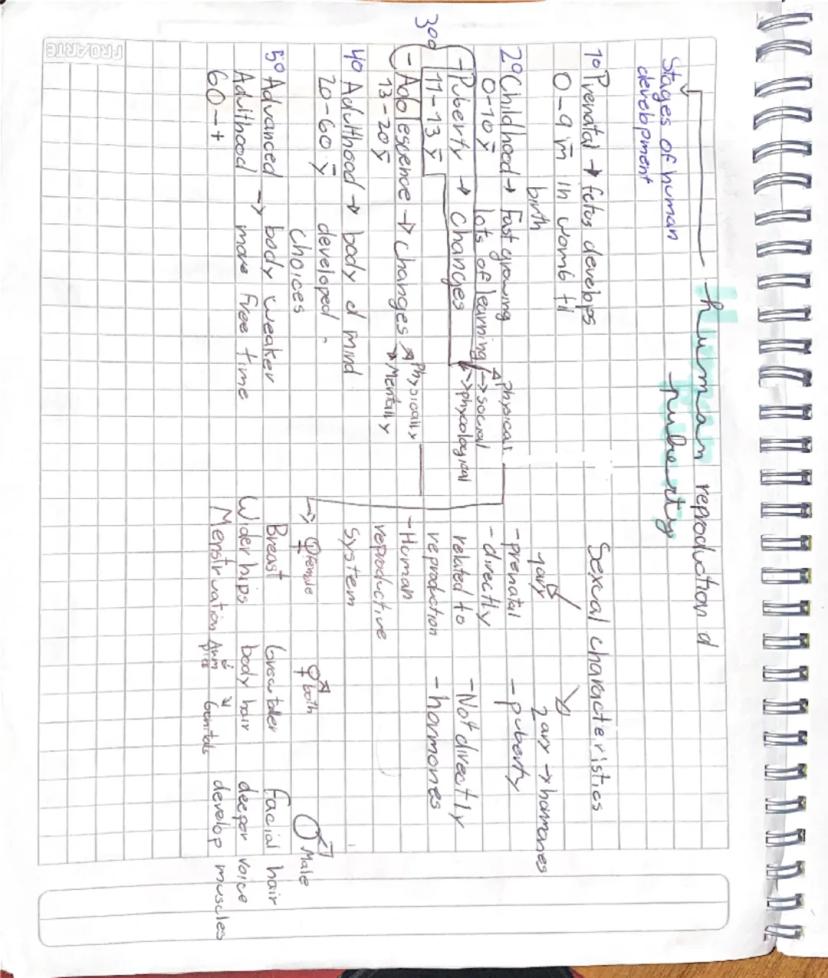 human reproduction d
puberty
Stages of human
development
1º Prenatal → fetus develops
0-9 m in womb til
birth
2º Childhood → fast growing
0-10 y lots of learning
3º
- Puberty → changes
→ physical
→ social
→ phycological
11-13 y
- Adolescence → changes
→ Physically
→ Mentally
13-20 y
4º Adulthood → body d mind
20-60 y developed.
choices
5º Advanced → body weaker
Adulthood more free time
60-+
Sexual characteristics
1ary
- prenatal
- directly
related to
reproduction
- Human
reproductive
system
2ary → hormones
- puberty
- Not directly
- hormones
→ ♀ female
Breast
Wider hips
Menstruation
both
Grow taller
body hair
Arm
pits
Genitals
♂ Male
facial hair
deeper voice
develop muscles
PROARTE